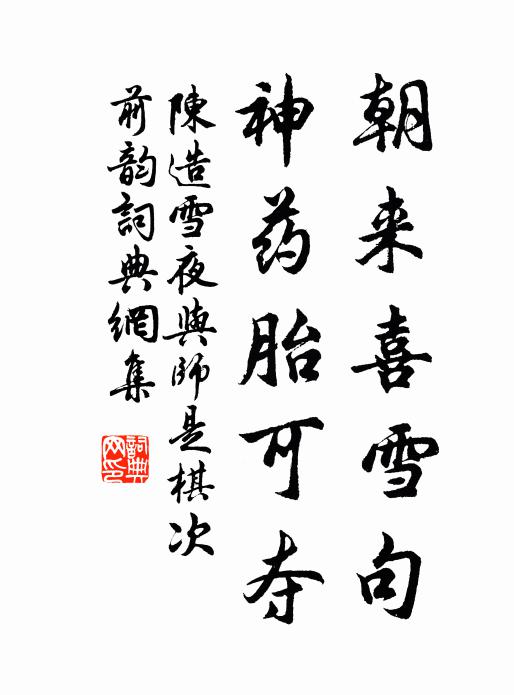 朝来喜雪句
神药胎可夺
陳造雪夜與師是棋次
前韵詞典網集
詞典网印